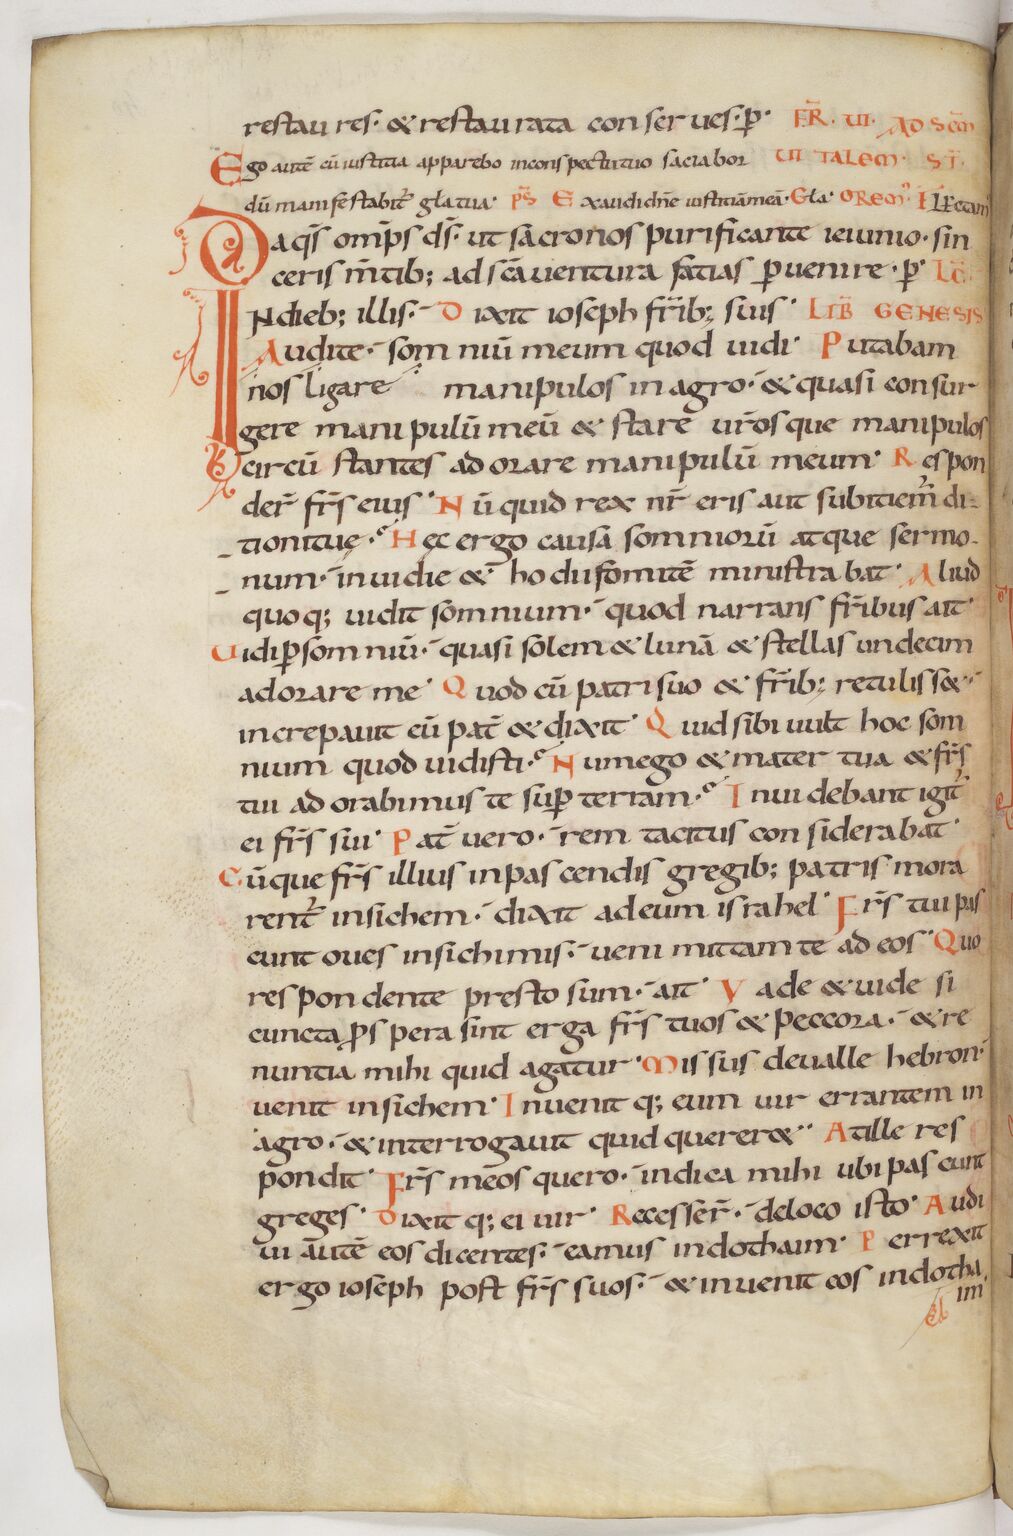 restaures· & restaurata conserues· ꝑ· FR̄· VI· AD SC̄M
Ego autē cū iustitia apparebo in conspectu tuo saciabor VITALEM· ST̄·
dū manifestabit᷑ gl̄a tua· PS̄ Exaudi dn̄e iustitiā meā· Gl̄a· OREM᷑·
Da qs̄ omp̄s ds̄· ut sācro nos purificante ieiunio· sin
ceris m̄tib; ad sc̄a uentura facias ꝑuenire· ꝑ· LC̄·
INdieb; illis· Dixit ioseph fr̄ib; suis· LIB̄ GENESIS
Audite· somniū meum quod uidi· Putabam
nos ligare manipulos in agro· & quasi consur
gere manipulū meū & stare ur̄osque manipulos
circū stantes adorare manipulū meum· Respon
der̄ fr̄s eius· Nūquid rex nr̄ eris aut subitiem᷑ di-
tioni tuę· Hęc ergo causa somniorū atque sermo-
num· inuidie & hodii fomitē ministrabat· Aliud
quoq; uidit somnium· quod narrans fr̄ibus ait·
Uidi ꝑ somniū· quasi solem & lunā & stellas undecim
adorare me· Quod cū patri suo & fr̄ib; retuliss&·
increpauit eū pat̄ & dixit· Quid sibi uult hoc som
nium quod uidisti· Num ego & mater tua & fr̄s
tui adorabimus te suꝑ terram· Inuidebant igit᷑
ei fr̄s sui· Pat̄ uero· rem tacitus considerabat·
Cūque fr̄s illius in pascendis gregib; patris mora
rent᷑ in sichem· dixit ad eum israhel· Fr̄s tui pas
cunt oues in sichimis· ueni mittam te ad eos· Quo
respondente presto sum· ait· Vade & uide si
cuncta ꝓspera sint erga fr̄s tuos & peccora· & re
nuntia mihi quid agatur· Missus de ualle hebron·
uenit in sichem· Inuenit q; eum uir errantem in
agro· & interrogauit quid querer&· At ille res
pondit· Fr̄s meos quero· indica mihi ubi pascunt
greges· Dixit q; ei uir· Recesser̄· de loco isto· Audi
ui autē eos dicentes· eamus in dothaim· Perrexit
ergo ioseph post fr̄s suos· & inuenit eos in dotha
im